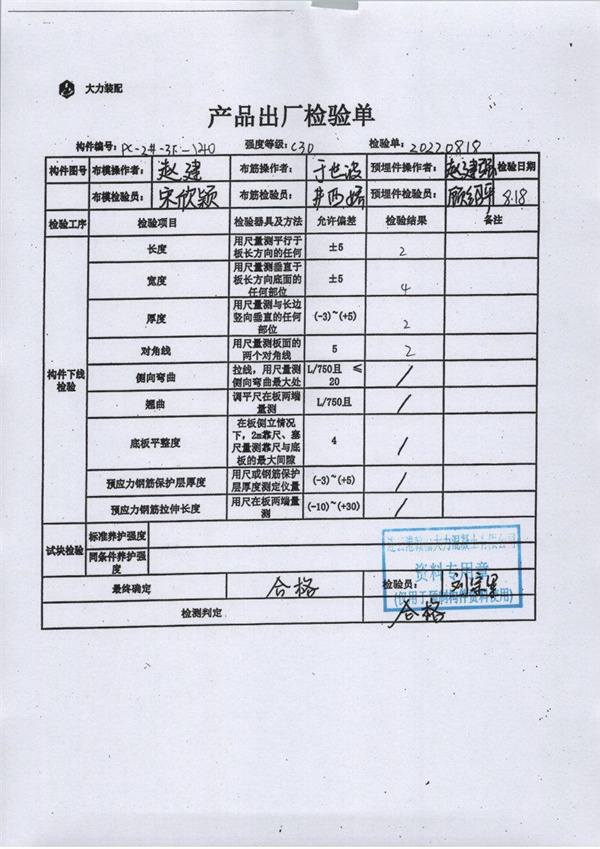 大力装配
产品出厂检验单
构件编号: PC-2#-3F-140 强度等级: C30 检验单: 20220818
构件图号 布模操作者: 赵建 布筋操作者: 于世波 预埋件操作者: 赵建 检验日期
布模检验员: 宋欣颖 布筋检验员: 预埋件检验员: 8.18
检验工序 检验项目 检验器具及方法 允许偏差 检验结果 备注
构件下线检验
长度 用尺量测平行于板长方向的任何 ±5 2
宽度 用尺量测垂直于板长方向底面的任何部位 ±5 4
厚度 用尺量测与长边竖向垂直的任何部位 (-3)~(+5) 2
对角线 用尺量测板面的两个对角线 5 2
侧向弯曲 拉线,用尺量测侧向弯曲最大处 L/750且 ≤20 /
翘曲 调平尺在板两端量测 L/750且 /
底板平整度 在板侧立情况下,2m靠尺、塞尺量测靠尺与底板的最大间隙 4 /
预应力钢筋保护层厚度 用尺或钢筋保护层厚度测定仪量 (-3)~(+5) /
预应力钢筋拉伸长度 用尺在板两端量测 (-10)~(+30) /
试块检验 标准养护强度
同条件养护强度
最终确定 合格 检验员:
检测判定 合格
资料专用章